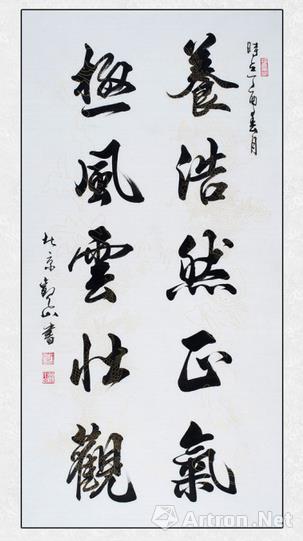 時在丁酉春月
養浩然正氣
極風雲壯觀
北京劉山書
Artron.Net